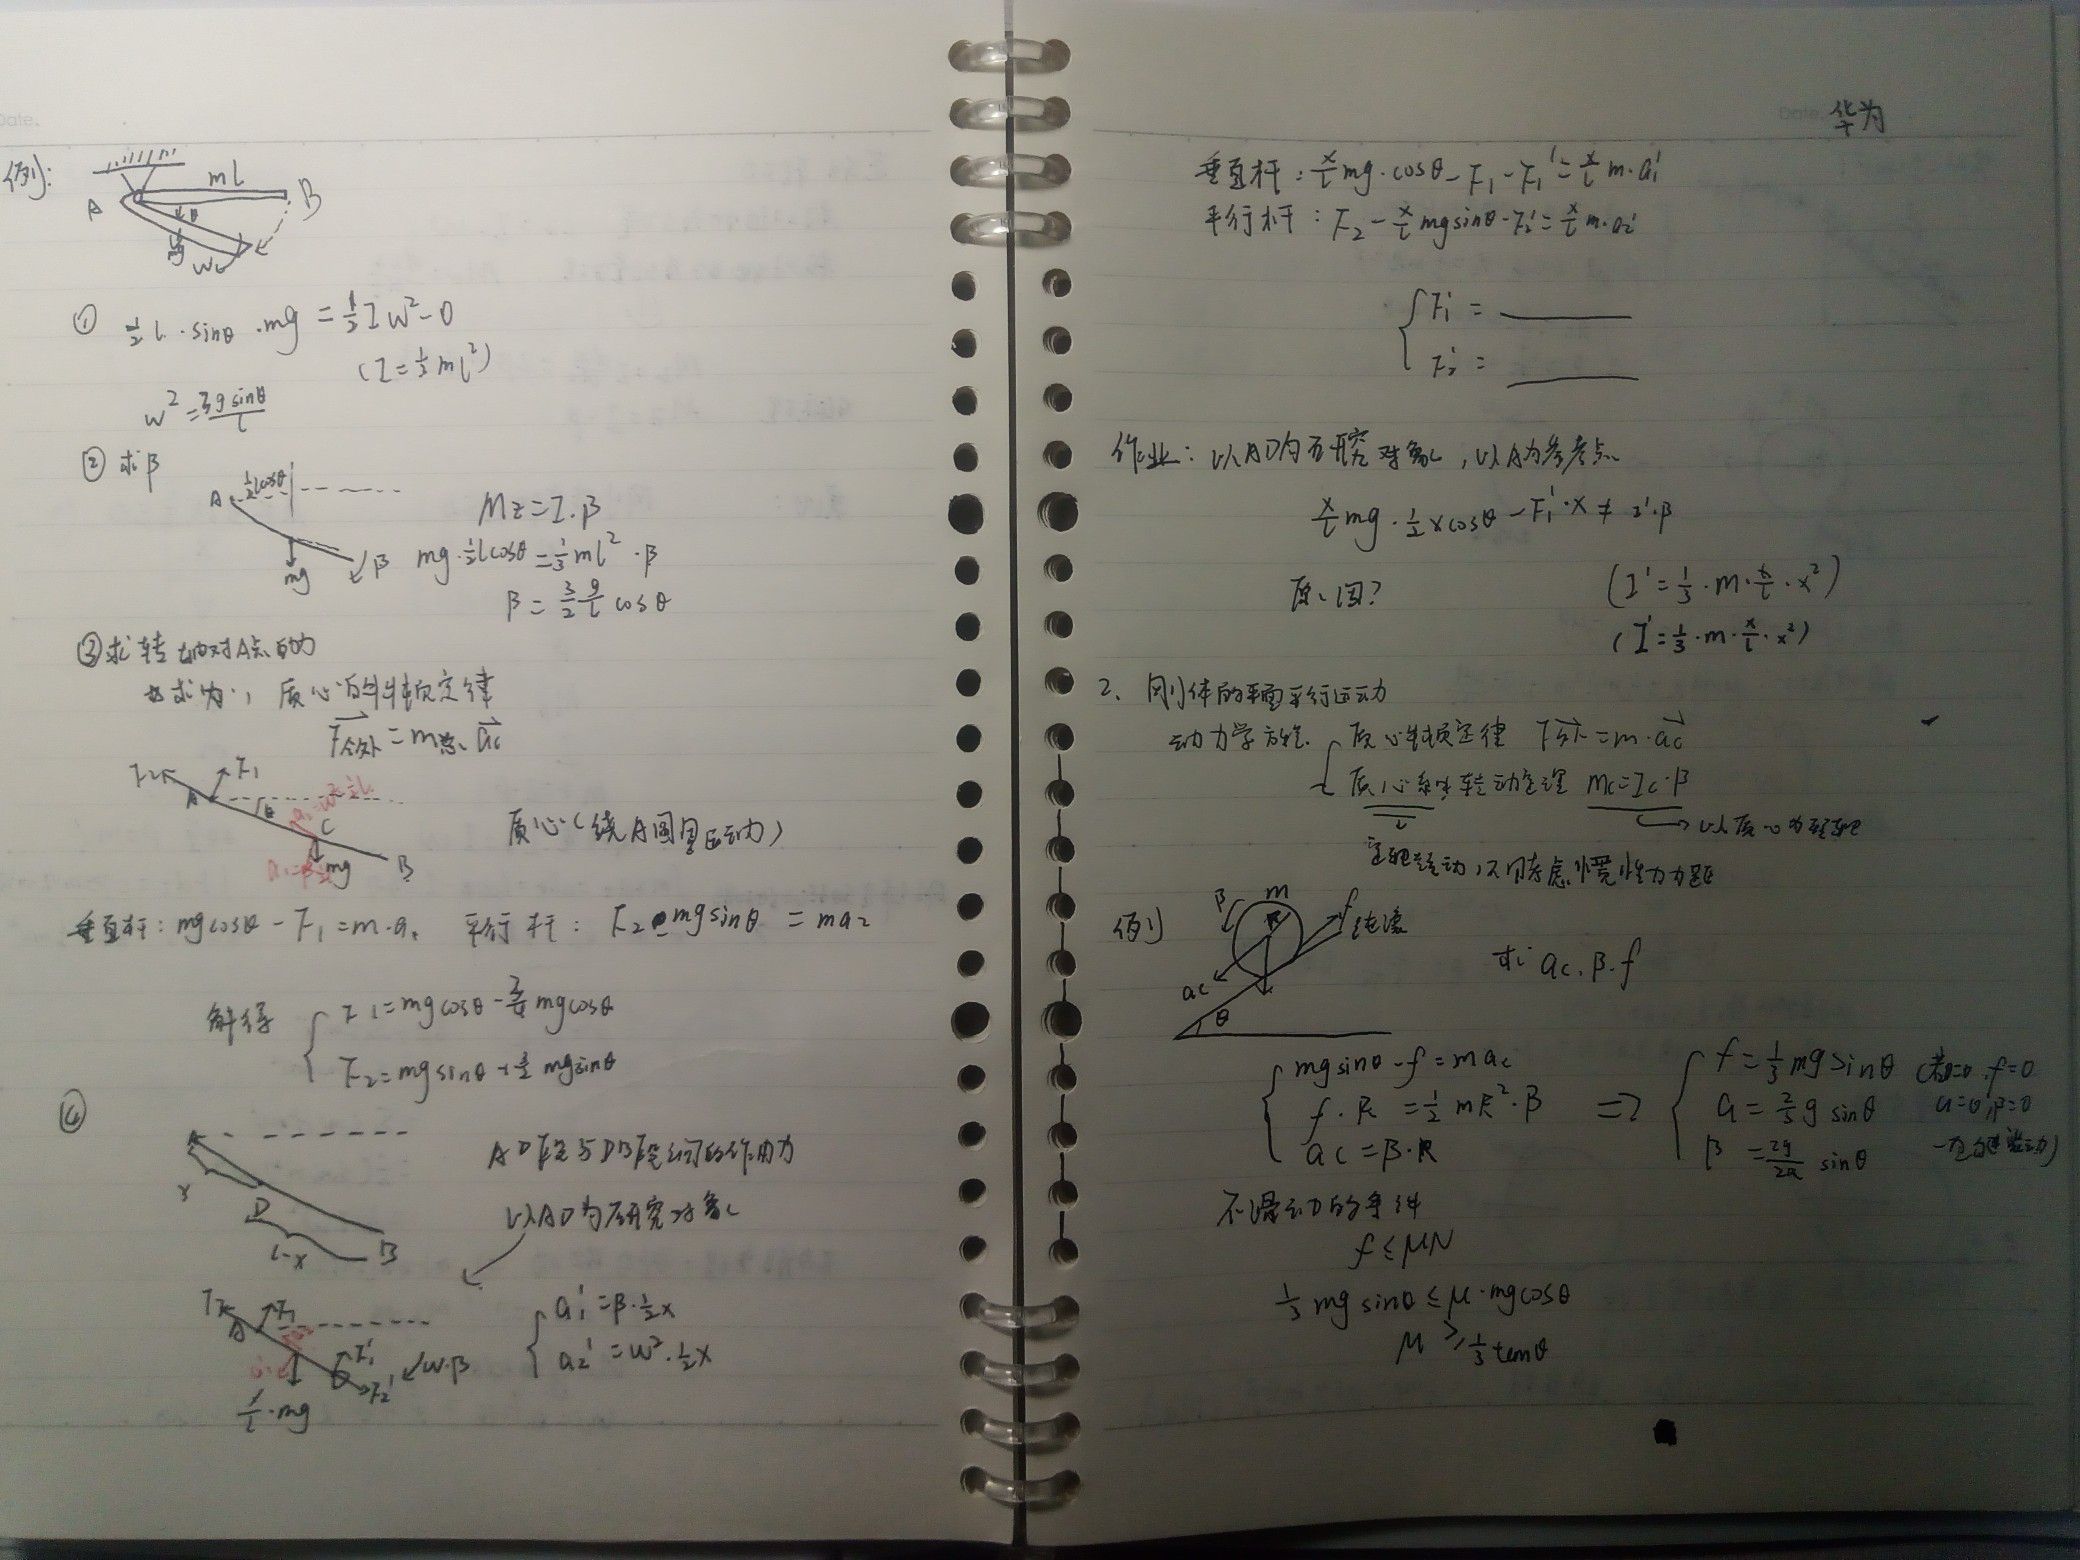 Date.
例:
ml
A
B
θ
mg
w
① ½l·sinθ·mg = ½Iw²-0
(I=⅓ml²)
w² = 3g sinθ/l
② 求β
A ½lcosθ
Mz=I·β
mg
β
mg·½lcosθ=⅓ml²·β
β = 3/2 g/l cosθ
③求转轴对A点的力
质心的牛顿定律
F合外 = m总 ac
F2 F1
A θ a2=w²·½l
C
质心(绕A圆周运动)
mg
B
垂直杆: mgcosθ - F1 = m·a1 平行杆: F2 - mgsinθ = ma2
解得
F1=mgcosθ-¾mgcosθ
F2=mgsinθ+3/2 mgsinθ
④
A
AD段与DB段之间的作用力
x
D
以AD为研究对象
l-x
B
F2 F1
A
a1'=β·½x
F1'
w·β
a2'=w²·½x
F2'
x/l·mg
Date. 华为
垂直杆: x/l mg·cosθ-F1-F1'=x/l m·a1'
平行杆: F2-x/l mgsinθ-F2'=x/l m·a2'
F1' =
F2' =
作业: 以AD为研究对象, 以A为参考点
x/l mg·½xcosθ-F1'·x ≠ I'·β
原因?
(I'=⅓·m·x/l·x²)
(I'=⅓·m·x/l·x²)
2、刚体的平面平行运动
动力学方程
质心牛顿定律 F外=m·ac
质心系转动定理 Mc=Ic·β
以质心为转轴
定轴转动,不用考虑惯性力力矩
例
β
m
R
f
纯滚
ac
θ
求 ac.β.f
mgsinθ-f=mac
f·R=½mR²·β
ac=β·R
=>
f=⅓mgsinθ
a=⅔g sinθ
β=2g/2R sinθ
f=0
a=0,β=0
不滑动的条件
f≤μN
⅓mgsinθ≤μ·mgcosθ
μ≥⅓tanθ